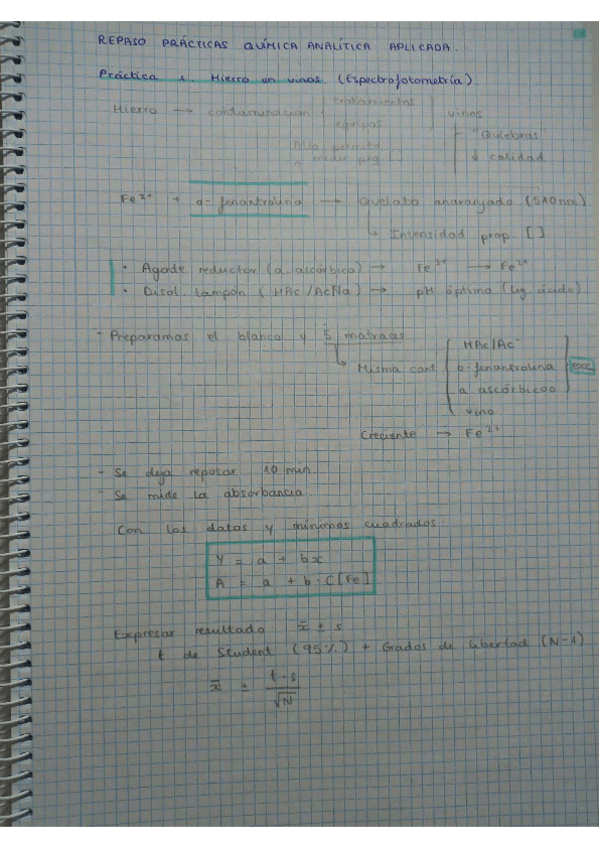 REPASO PRÁCTICAS QUÍMICA ANALÍTICA APLICADA.
Práctica 1. Hierro en vinos. (Espectrofotometría)
Hierro → contaminación { tratamientos equipos } vinos
"Quiebras"
↓ calidad
[ ]
Fe2+ + o-fenantrolina → Quelato anaranjado (510nm)
↳ Intensidad prop. [ ]
· Agente reductor (a. ascórbico) → Fe3+ → Fe2+
· Disol. tampón (HAc/AcNa) → pH óptimo (lig. ácido)
- Preparamos el blanco y 5 matraces
↳ Misma cant. { HAc/Ac-
o-fenantrolina
a ascórbico
vino
Creciente → Fe2+
- Se deja reposar 10 min.
- Se mide la absorbancia.
Con los datos y mínimos cuadrados:
Y = a + bx
A = a + b · C[Fe]
Expresar resultado x̄ ± s
t de Student (95%) + Grados de libertad (N-1)
x̄ ± t·s / √N